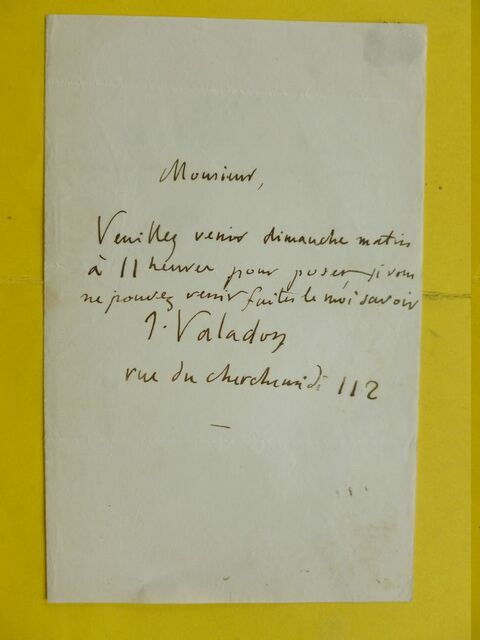 Monsieur,
Veuillez venir dimanche matin
à 11 heures pour poser, si vous
ne pouvez venir faites le moi savoir
J. Valadon
rue du cherchemidi 112